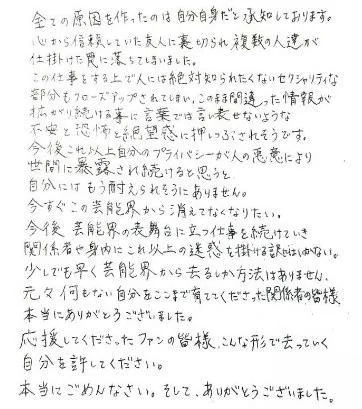 全ての原因を作ったのは自分自身だと承知しております。
心から信頼していた友人に裏切られ複数の人達が
仕掛けた罠に落ちてしまいました。
この仕事をする上で人には絶対知られたくないセクシャリティな
部分もクローズアップされてしまい、このまま間違った情報が
拡がり続ける事に言葉では言い表せないような
不安と恐怖と絶望感に押しつぶされそうです。
今後これ以上自分のプライバシーが人の悪意により
世間に暴露され続けると思うと
自分にはもう耐えられそうにありません。
今すぐこの芸能界から消えてなくなりたい。
今後芸能界の表舞台に立つ仕事を続けていき
関係者や身内にこれ以上の迷惑を掛ける訳にはいかない。
少しでも早く芸能界から去るしか方法はありません。
元々何もない自分をここまで育ててくださった関係者の皆様
本当にありがとうございました。
応援してくださったファンの皆様、こんな形で去っていく
自分を許してください。
本当にごめんなさい。そして、ありがとうございました。